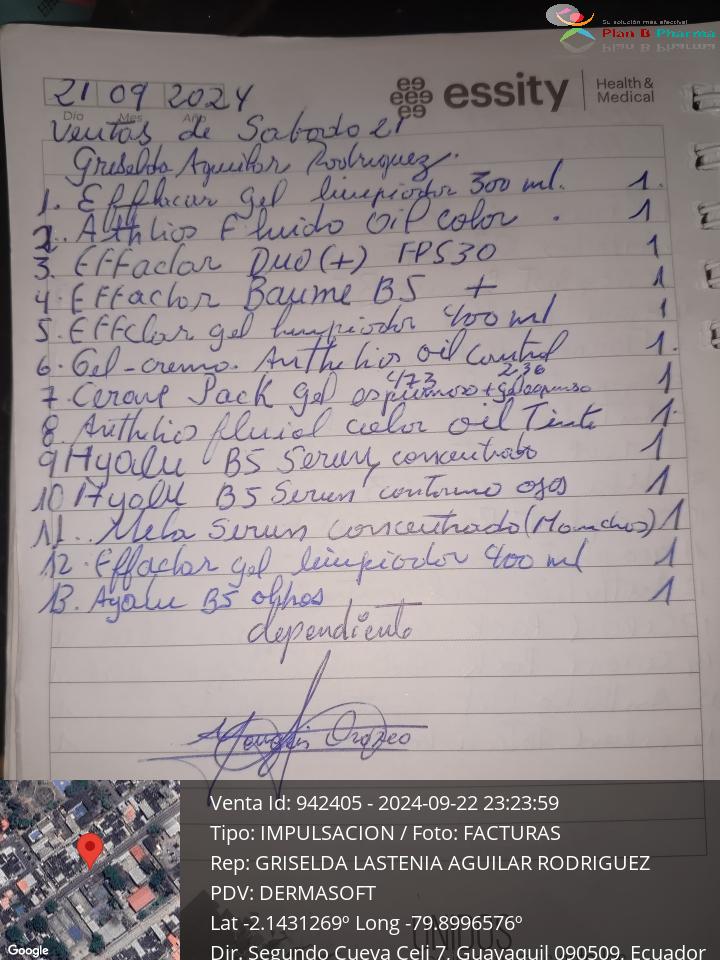 Su solución más efectiva!
Plan B Pharma
21 09 2024
Día Mes Año
essity
Health &
Medical
Ventas de Sabado 21
Griselda Aguilar Rodriguez.
1. Efflacar gel limpiador 300 ml. 1.
2. Athlios Fluido Oil color . 1
3. Effaclar Duo (+) FPS30 1
4. Effaclor Baume B5 + 1
5. Effclar gel limpiador 400 ml 1
6. Gel-crema. Anthelios oil control 1.
473 236
7. Cerave Pack gel espumoso + gel espumoso 1
8. Anthelios fluid color oil Tinte 1.
9 Hyalu B5 Serum concentrado 1
10 Hyalu B5 Serum contorno ojos 1
11.. Mela Serum concentrado (Manchas) 1
12. Effaclar gel limpiador 400 ml 1
13. Ayalu B5 1
dependiente
Orozco
Venta Id: 942405 - 2024-09-22 23:23:59
Tipo: IMPULSACION / Foto: FACTURAS
Rep: GRISELDA LASTENIA AGUILAR RODRIGUEZ
PDV: DERMASOFT
Lat -2.1431269º Long -79.8996576º
Dir. Segundo Cueva Celi 7, Guayaquil 090509, Ecuador
Google